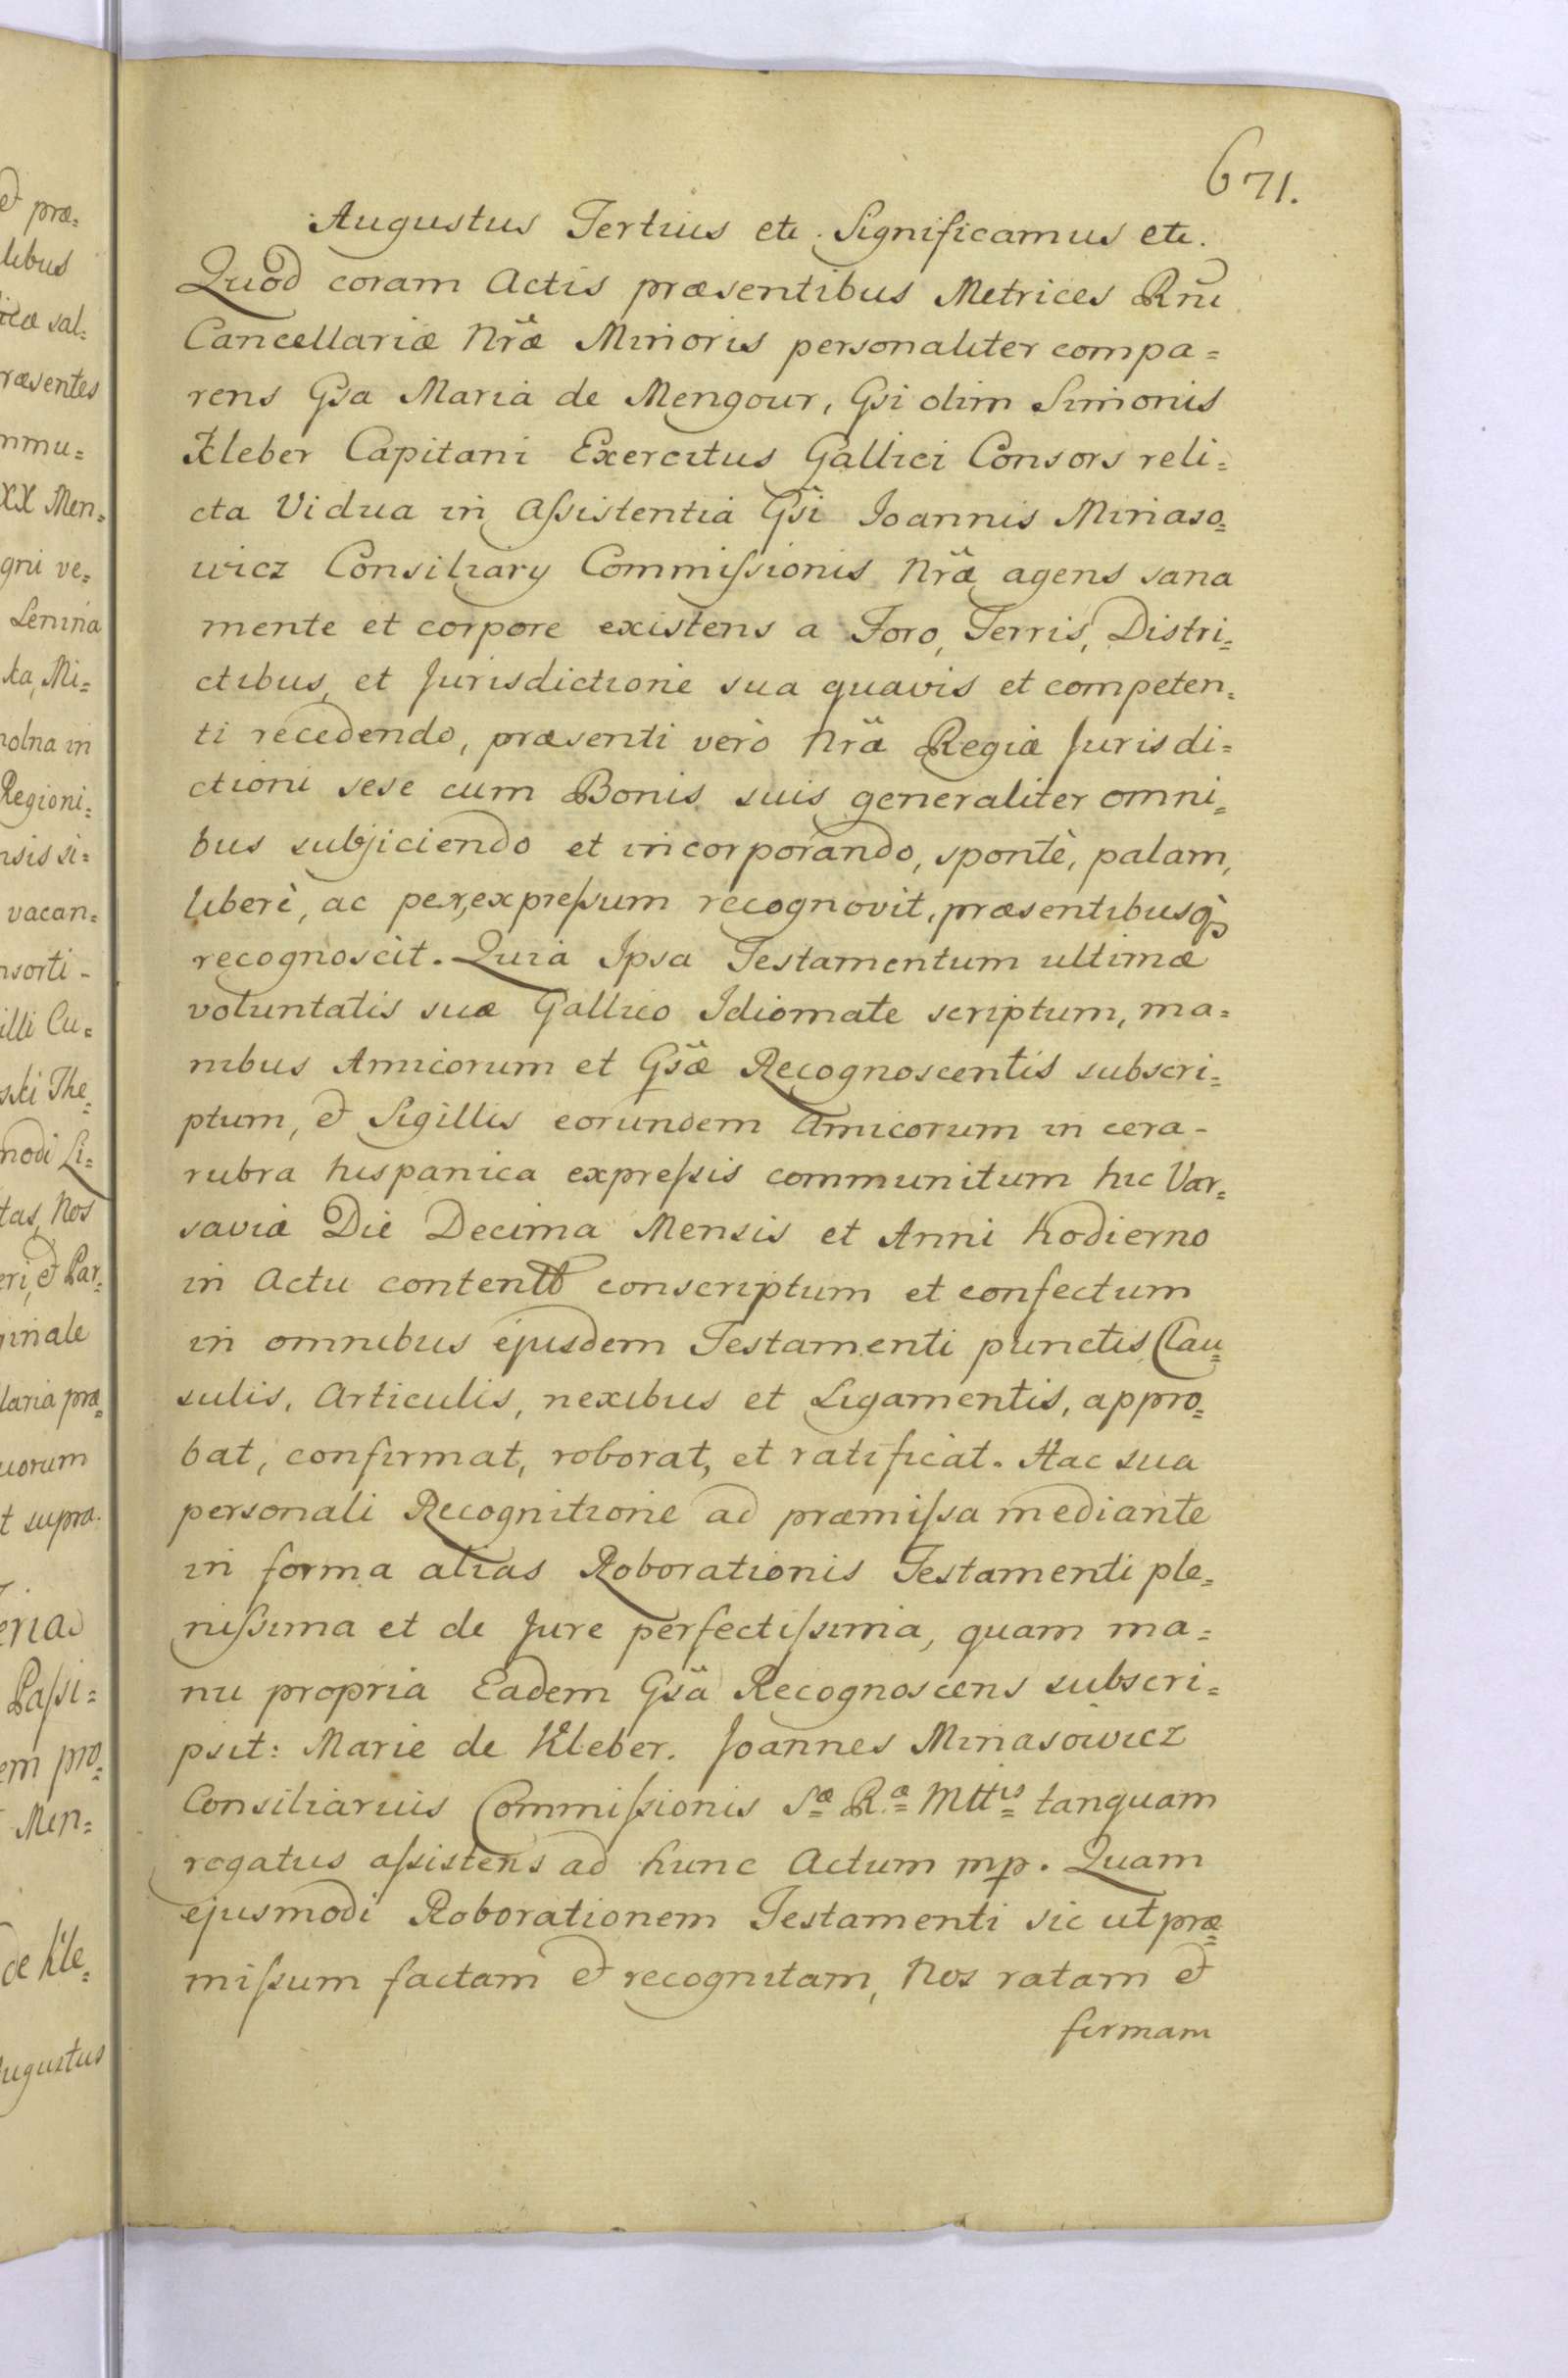 671.
Augustus Tertius etc. Significamus etc.
Quod coram Actis præsentibus Metrices Rñi
Cancellariæ Nræ Minoris personaliter compa=
rens Gsa Maria de Mengour, Gsi olim Simonis
Kleber Capitani Exercitus Gallici Consors reli=
cta Vidua in aſsistentia Gsi Joannis Minaso=
wicz Consiliary Commiſsionis Nræ agens sana
mente et corpore existens a Foro, Terris, Distri=
ctibus, et Jurisdictione sua quavis et competen=
ti recedendo, præsenti verò Nræ Regiæ Jurisdi=
ctioni sese cum Bonis suis generaliter omni=
bus subjiciendo et incorporando, spontè, palam,
liberè, ac per, expreſsum recognovit, præsentibusq3
recognoscit. Quia Ipsa Testamentum ultimæ
voluntatis suæ Gallico Idiomate scriptum, ma=
nibus Amicorum et Gsæ Recognoscentis subscri=
ptum, et Sigillis eorundem Amicorum in cera-
rubra hispanica expreſsis communitum hic Var=
saviæ Die Decima Mensis et Anni hodierno
in Actu contentt conscriptum et confectum
in omnibus ejusdem Testamenti punctis, Clau=
sulis, Articulis, nexibus et Ligamentis, appro=
bat, confirmat, roborat, et ratificat. Hac sua
personali Recognitione ad præmiſsa mediante
in forma alias Roborationis Testamenti ple=
niſsima et de Jure perfectiſsima, quam ma=
nu propria Eadem Gsa Recognoscens subscri=
psit: Marie de Kleber. Joannes Minasowicz
Consiliarius Commiſsionis Sæ Ræ Mttis tanquam
rogatus aſsistens ad hunc Actum mp. Quam
ejusmodi Roborationem Testamenti sic ut præ=
miſsum factam et recognitam, Nos ratam et
firmam